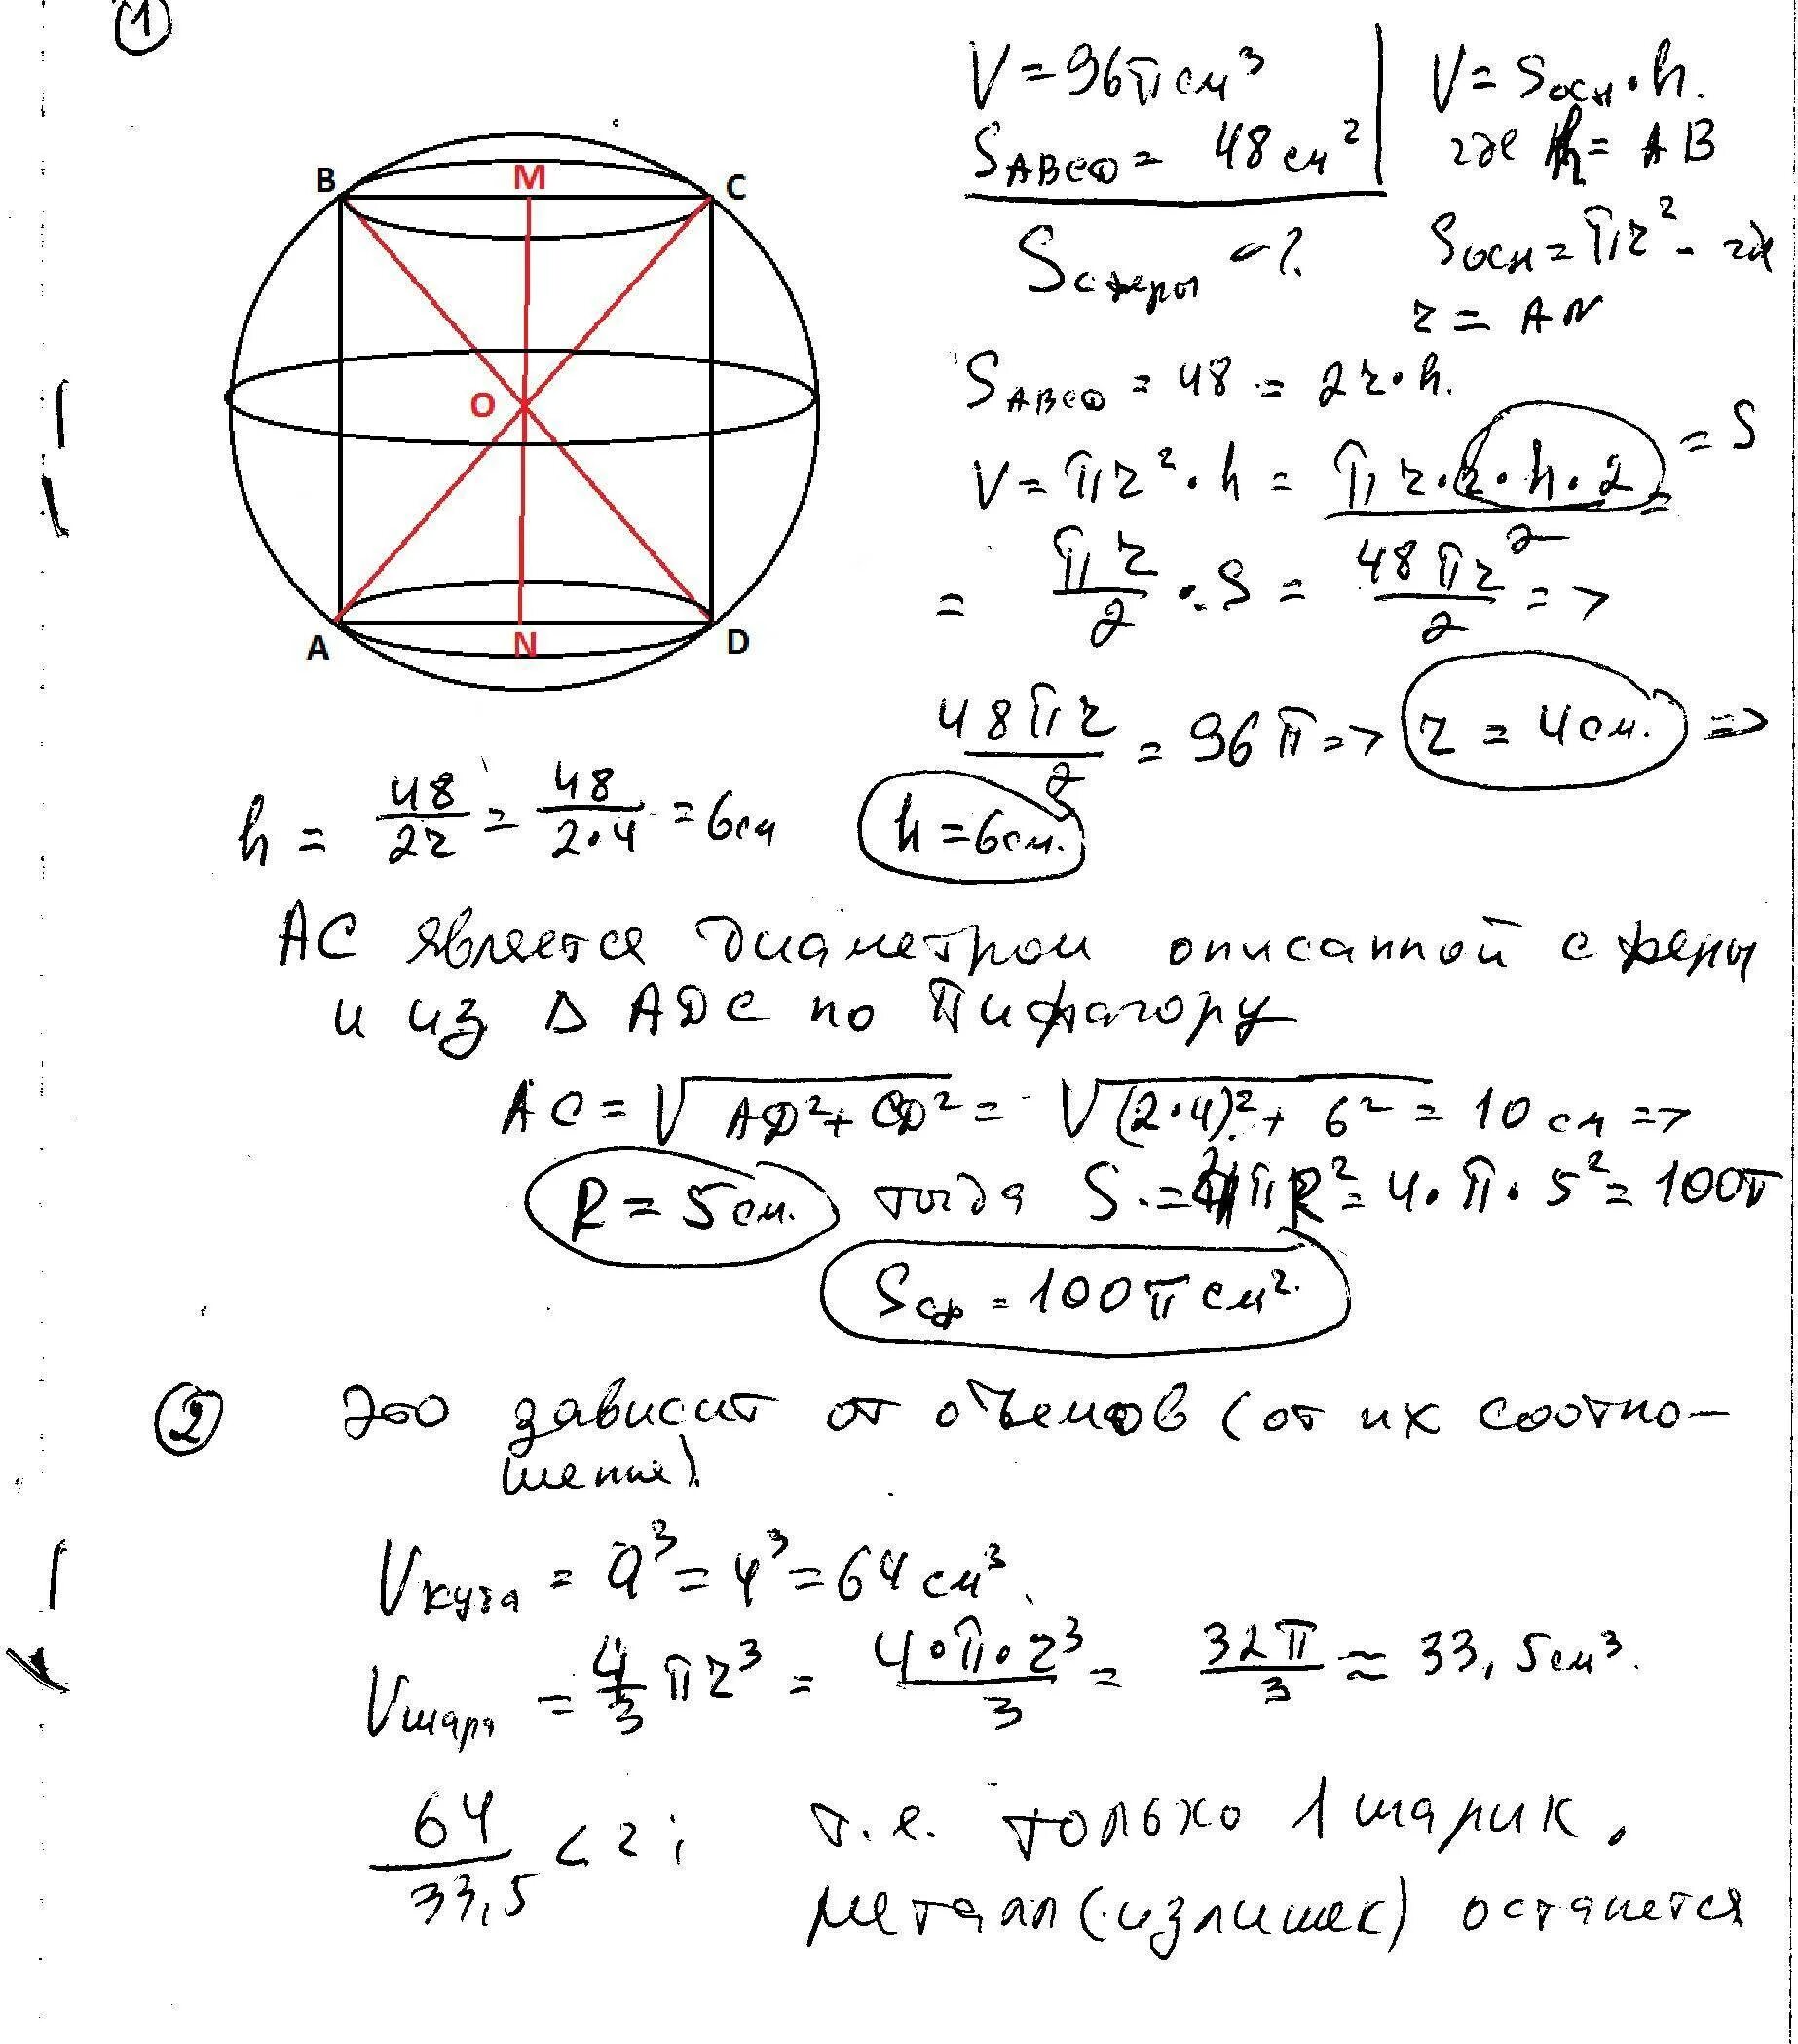 ①
V = 96π см³
S ABCD = 48 см²
S сферы - ?
V = Sосн · h.
где h = AB
Sосн = πr² - где
r = AN
B M C
O
A N D
S ABCD = 48 = 2r · h.
V = πr² · h = πr·r·h·2 / 2 = S =
= πr/2 · S = 48πr/2 =>
48πr/2 = 96π => r = 4 см. =>
h = 48/2r = 48/2·4 = 6 см h = 6 см.
AC является диаметром описанной сферы
и из Δ ADC по Пифагору
AC = √AD² + CD² = √(2·4)² + 6² = 10 см =>
R = 5 см. тогда S = 4πR² = 4·π·5² = 100π
Sсф = 100π см².
② Это зависит от объемов (от их соотно-
шения).
Vкуба = a³ = 4³ = 64 см³.
Vшара = 4/3 πr³ = 4·π·2³/3 = 32π/3 ≈ 33,5 см³.
64/33,5 < 2; т.е. только 1 шарик.
металл (излишек) останется